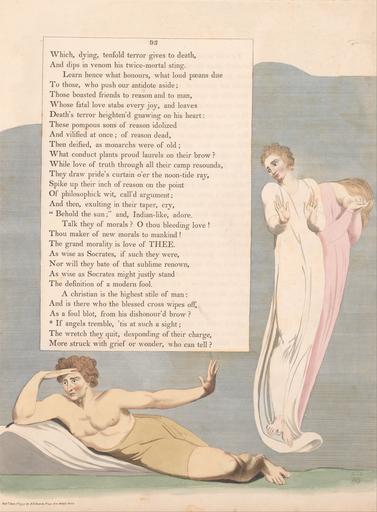 92
Which, dying, tenfold terror gives to death,
And dips in venom his twice-mortal sting.
Learn hence what honours, what loud pæans due
To those, who push our antidote aside;
Those boasted friends to reason and to man,
Whose fatal love stabs every joy, and leaves
Death's terror heighten'd gnawing on his heart:
These pompous sons of reason idolized
And vilified at once; of reason dead,
Then deified, as monarchs were of old;
What conduct plants proud laurels on their brow?
While love of truth through all their camp resounds,
They draw pride's curtain o'er the noon-tide ray,
Spike up their inch of reason on the point
Of philosophick wit, call'd argument;
And then, exulting in their taper, cry,
"Behold the sun;" and, Indian-like, adore.
Talk they of morals? O thou bleeding love!
Thou maker of new morals to mankind!
The grand morality is love of THEE.
As wise as Socrates, if such they were,
Nor will they bate of that sublime renown,
As wise as Socrates might justly stand
The definition of a modern fool.
A christian is the highest stile of man:
And is there who the blessed cross wipes off,
As a foul blot, from his dishonour'd brow?
* If angels tremble, 'tis at such a sight;
The wretch they quit, desponding of their charge,
More struck with grief or wonder, who can tell?